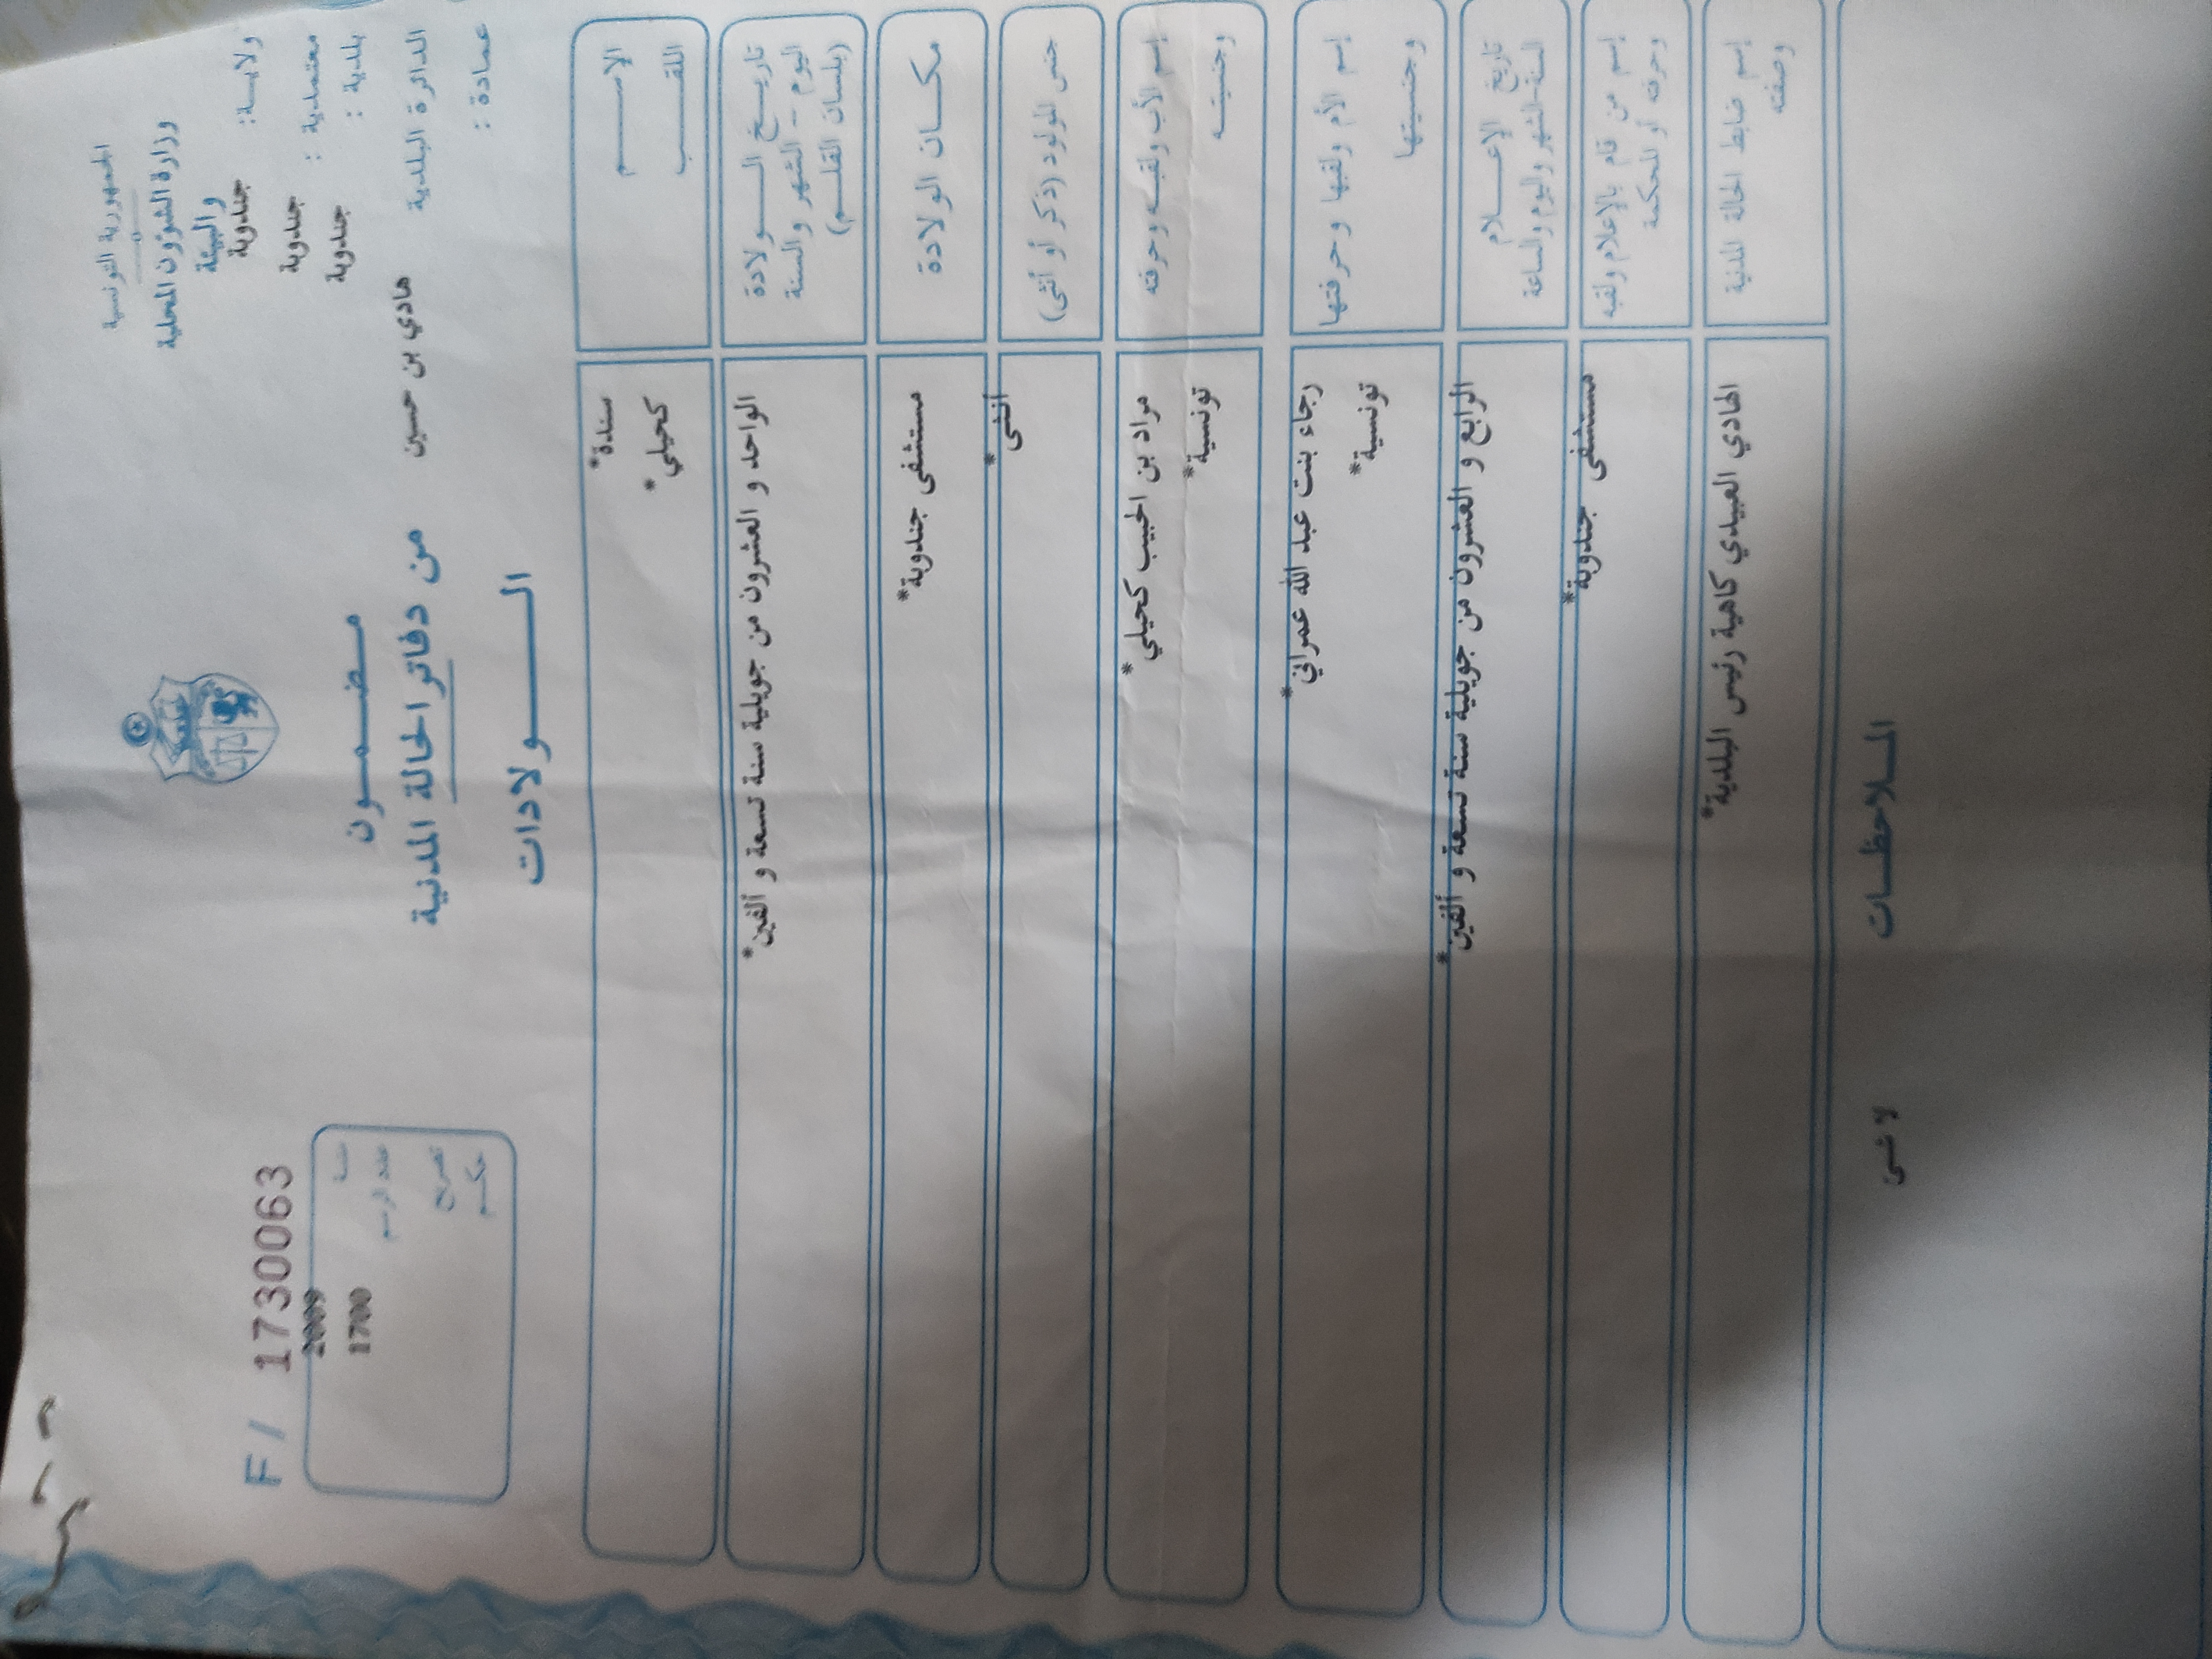 الجمهورية التونسية
وزارة الشؤون المحلية
والبيئة
ولايـة: جندوبة
معتمدية : جندوبة
بلدية : جندوبة
الدائرة البلدية هادي بن حسين
عمادة :
مـضـمـون
من دفاتر الحالة المدنية
الـولادات
F/ 1730063
سنة 2009
عدد الرسم 1700
تصريح
حكـم
الإسـم سندة*
اللقـب كحيلي*
تاريـخ الـولادة
اليوم - الشهر والسنة
(بلسان القلـم)
الواحد و العشرون من جويلية سنة تسعة و ألفين*
مكـان الولادة مستشفى جندوبة*
جنس المولود (ذكر أو أنثى) انثى*
إسم الأب ولقبـه وحرفته
وجنسيتـه
مراد بن الحبيب كحيلي*
تونسية*
إسم الأم ولقبها وحرفتها
وجنسيتها
رجاء بنت عبد الله عمراني*
تونسية*
تاريخ الإعـلام
السنة-الشهر واليوم والساعة
الرابع و العشرون من جويلية سنة تسعة و ألفين*
إسم من قام بالإعلام ولقبه
وحرفته أو المحكمة
مستشفى جندوبة*
إسم ضابط الحالة المدنية
وصفته
الهادي العبيدي كاهية رئيس البلدية*
المـلاحظـات
لا شئ